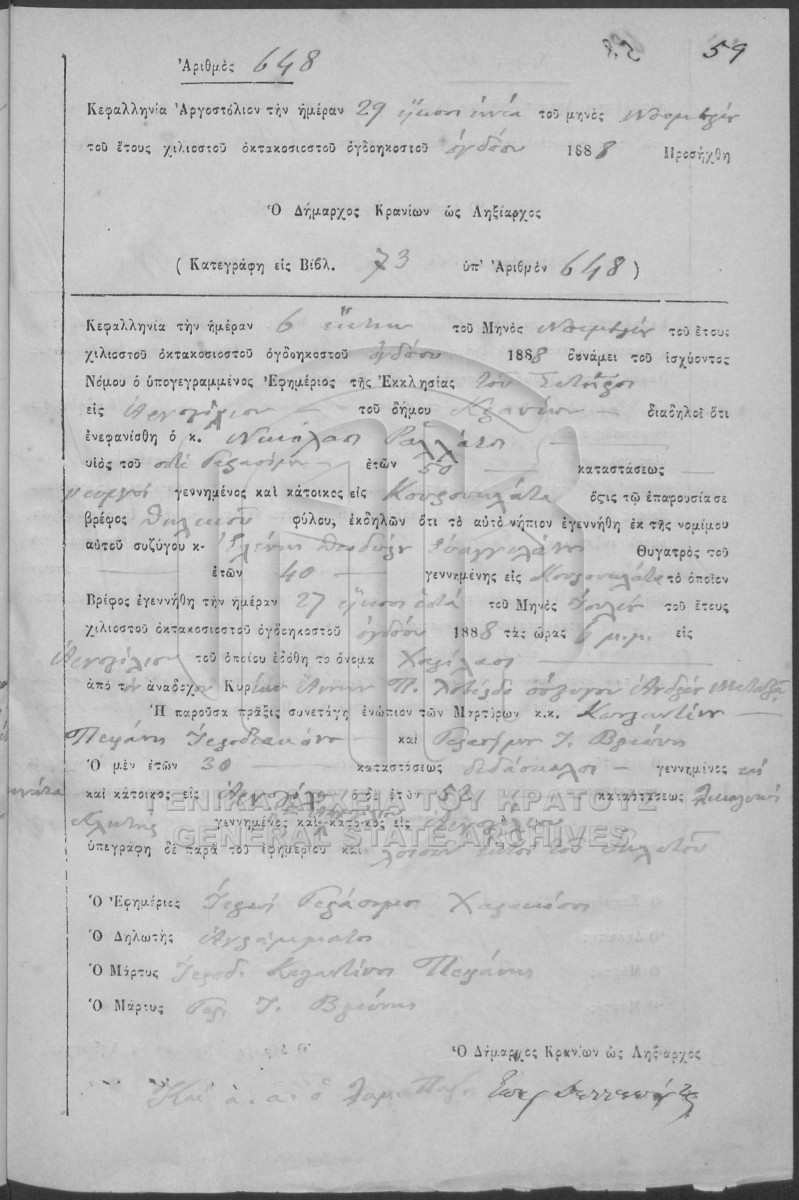 59
Ἀριθμὸς 648
Κεφαλληνία Ἀργοστόλιον τὴν ἡμέραν 29 εἴκοσι ἐννέα τοῦ μηνὸς Νοεμβρίου
τοῦ ἔτους χιλιοστοῦ ὀκτακοσιοστοῦ ὀγδοηκοστοῦ ὀγδόου 1888 Προσήχθη
Ὁ Δήμαρχος Κρανίων ὡς Ληξίαρχος
(Κατεγράφη εἰς Βιβλ. 73 ὑπ' Ἀριθμὸν 648)
Κεφαλληνία τὴν ἡμέραν 6 ἕκτην τοῦ Μηνὸς Νοεμβρίου τοῦ ἔτους
χιλιοστοῦ ὀκτακοσιοστοῦ ὀγδοηκοστοῦ ὀγδόου 1888 δυνάμει τοῦ ἰσχύοντος
Νόμου ὁ ὑπογεγραμμένος Ἐφημέριος τῆς Ἐκκλησίας τοῦ Σωτῆρος
εἰς Ἀργοστόλιον τοῦ δήμου Κρανίων διαδηλοῖ ὅτι
ἐνεφανίσθη ὁ κ. Νικόλαος
υἱὸς τοῦ ποτὲ Γερασίμου ἐτῶν 50 καταστάσεως
γεωργοῦ γεννημένος καὶ κάτοικος εἰς Κουρουκλάτα ὅςτις τῷ ἐπαρουσίασε
βρέφος θηλυκοῦ φύλου, ἐκδηλῶν ὅτι τὸ αὐτὸ νήπιον ἐγεννήθη ἐκ τῆς νομίμου
αὐτοῦ συζύγου κ. Ἑλένης Θεοδώρου Θυγατρὸς τοῦ
ἐτῶν 40 γεννημένης εἰς Κουρουκλάτα τὸ ὁποῖον
Βρέφος ἐγεννήθη τὴν ἡμέραν 27 εἴκοσι ἑπτά τοῦ Μηνὸς Ἰουλίου τοῦ ἔτους
χιλιοστοῦ ὀκτακοσιοστοῦ ὀγδοηκοστοῦ ὀγδόου 1888 τὰς ὥρας 6 μ.μ. εἰς
Ἀργοστόλιον τοῦ ὁποίου ἐδόθη τὸ ὄνομα
ἀπὸ τὸν ἀνάδοχον Κυρίαν σύζυγον Ἀνδρέου Μεταξᾶ
Ἡ παροῦσα πρᾶξις συνετάγη ἐνώπιον τῶν Μαρτύρων κ.κ. Κωνσταντίνου
Ἱεροδιακόνου καὶ Γερασίμου Ι.
Ὁ μὲν ἐτῶν 30 καταστάσεως διδάσκαλος γεννημένος
καὶ κάτοικος εἰς Ἀργοστόλι ὁ δὲ ἐτῶν 52 καταστάσεως
γεννημένος καὶ κάτοικος εἰς Ἀργοστόλιον
ὑπεγράφη δὲ παρὰ τοῦ ἐφημερίου καὶ λοιπῶν
ΓΕΝΙΚΑ ΑΡΧΕΙΑ ΤΟΥ ΚΡΑΤΟΥΣ
GENERAL STATE ARCHIVES
Ὁ Ἐφημέριος Ἱερεὺς Γεράσιμος
Ὁ Δηλωτὴς Ἀγράμματος
Ὁ Μάρτυς
Ὁ Μάρτυς Γερ. Ι.
Ὁ Δήμαρχος Κρανίων ὡς Ληξίαρχος